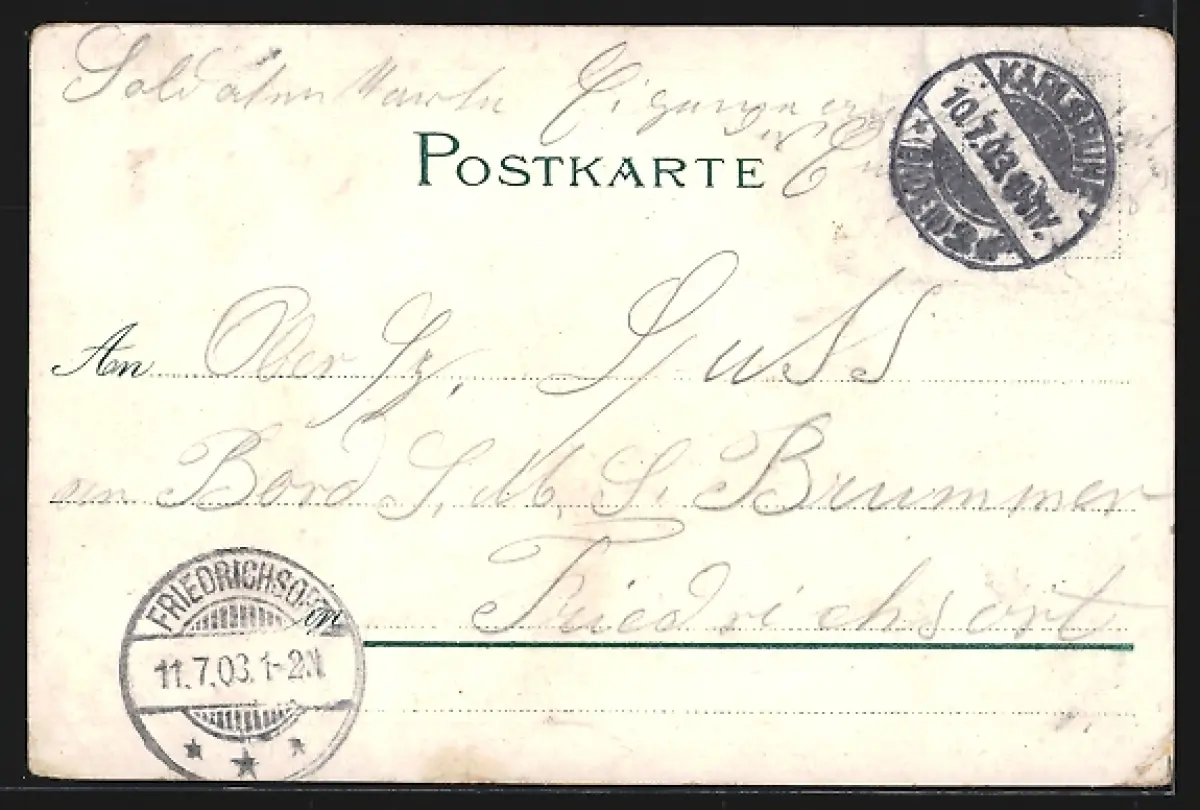 Soldaten Karte Eigene
POSTKARTE
KARLSRUHE
10.7.03
(BADEN)
An Ober Hz. Guss
an Bord S. M. S. Brummer
in Friedrichsort
FRIEDRICHSORT
11.7.03. 1-2.N.